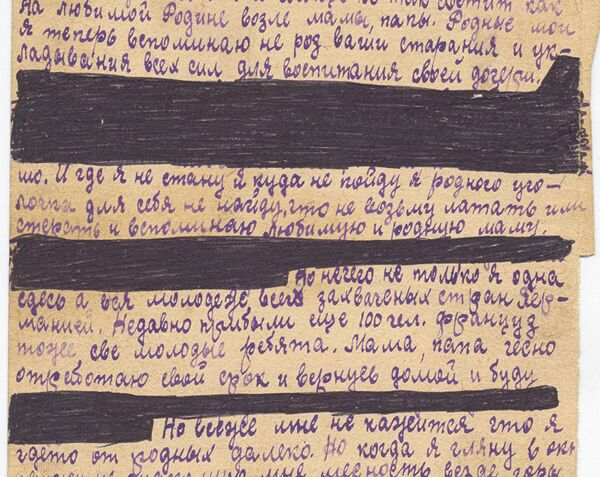 так светит как
На любимой Родине возле мамы, папы. Родные мои
я теперь вспоминаю не роз ваши старания и ук-
ладывания всех сил для воспитания своей дочери.
мо. И где я не стану и куда не пойду я родного уго-
лочка для себя не найду, што не возьму латать или
стерать и вспоминаю любимую и родную маму.
Но нечего не только я одна
сдесь а вся молодеже всех захваченых стран Гер-
манией. Недавно прибыли еще 100 чел. француз
тоже све молодые ребята. Мама, папа чесно
отработаю свой срок и вернусь домой и буду
Но всеже мне не кажится што я
гдето от родных далеко. Но когда я гляну в ок-
мне месность везде горы